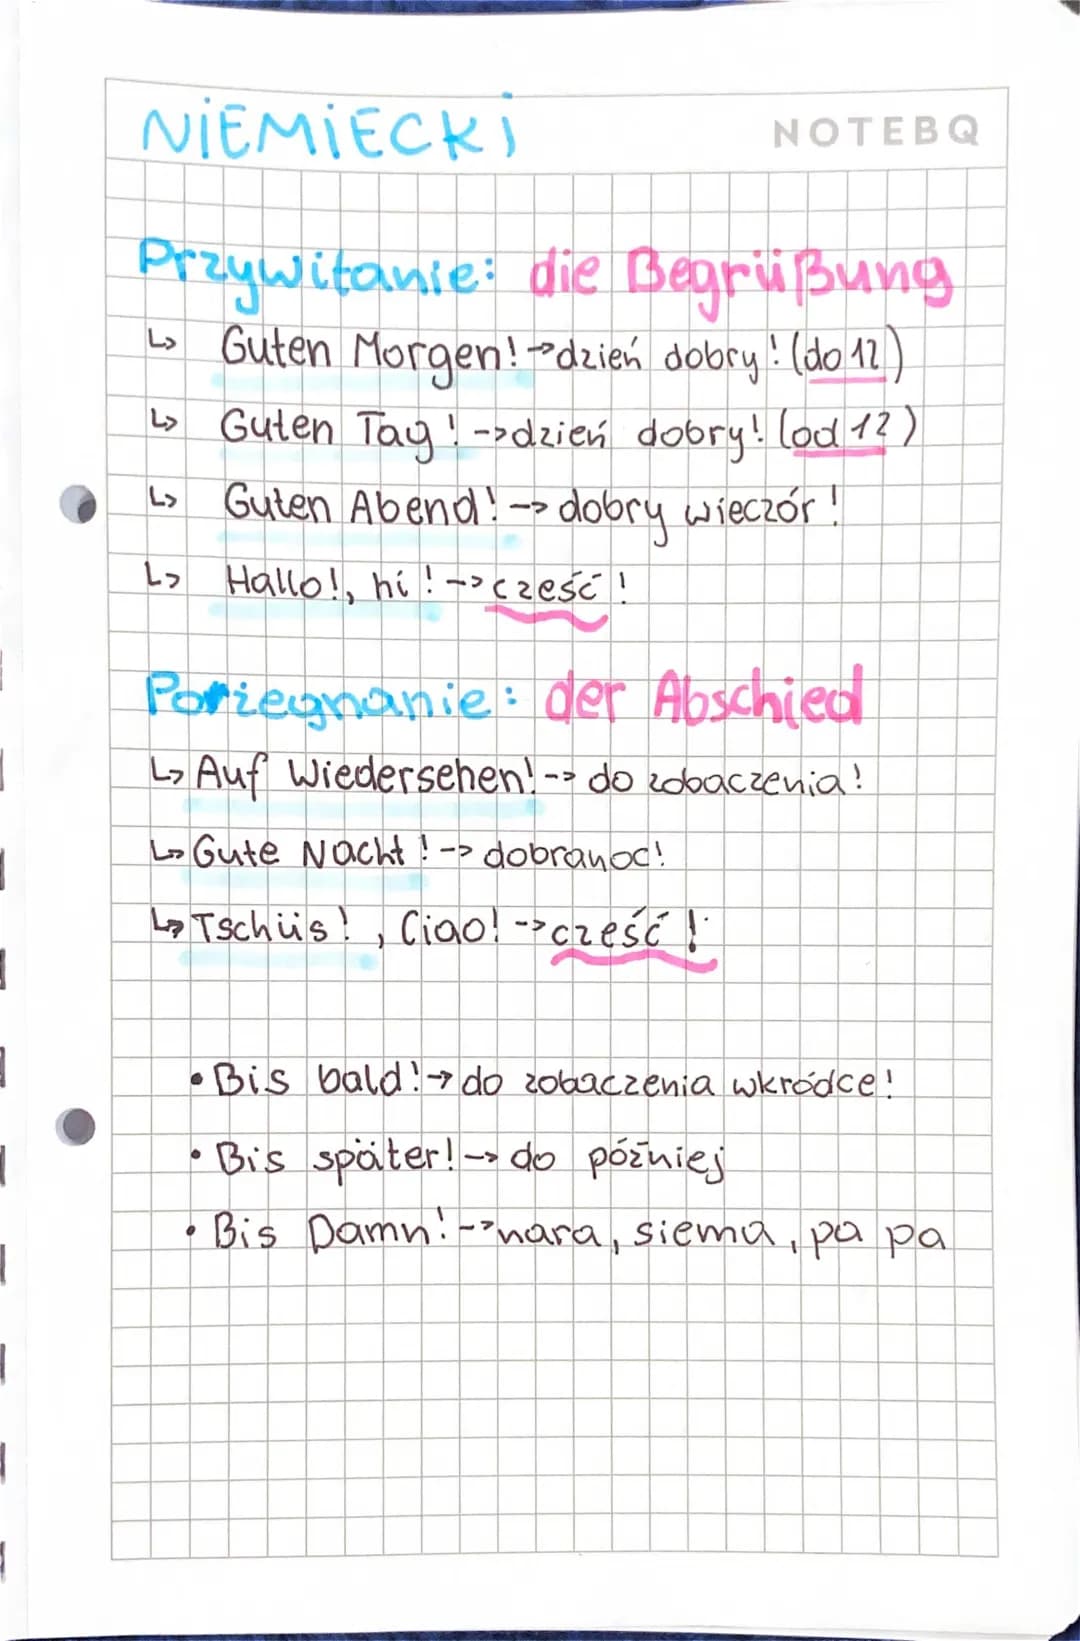 NiEMiECKi
NOTEBQ
Przywitanie: die Begrüßung
↳ Guten Morgen! → dzień dobry! (do 12)
↳ Guten Tag! -> dzień dobry! (od 12)
↳ Guten Abend! -> dobry wieczór!
↳ Hallo!, hi! -> cześć!
Porżegnanie: der Abschied
↳ Auf Wiedersehen! -> do zobaczenia!
↳ Gute Nacht! -> dobranoc!
↳ Tschüs!, Ciao! -> cześć!
• Bis bald! → do zobaczenia wkródce!
• Bis später! -> do później
• Bis Damn! -> nara, siema, pa pa